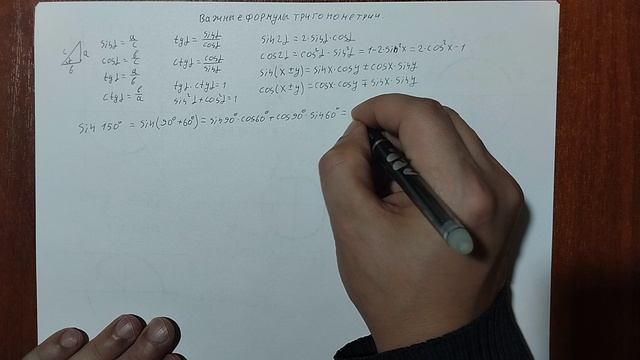 Важные формулы тригонометрии
c a b
sin α = a/c
cos α = b/c
tg α = a/b
ctg α = b/a
tg α = sin α/cos α
ctg α = cos α/sin α
tg α · ctg α = 1
sin²α + cos²α = 1
sin 2α = 2·sin α·cos α
cos 2α = cos²α - sin²α = 1-2·sin²x = 2·cos²x-1
sin(x±y) = sin x·cos y ± cos x·sin y
cos(x±y) = cos x·cos y ∓ sin x·sin y
sin 150° = sin(90°+60°) = sin 90°·cos 60° + cos 90°·sin 60° =